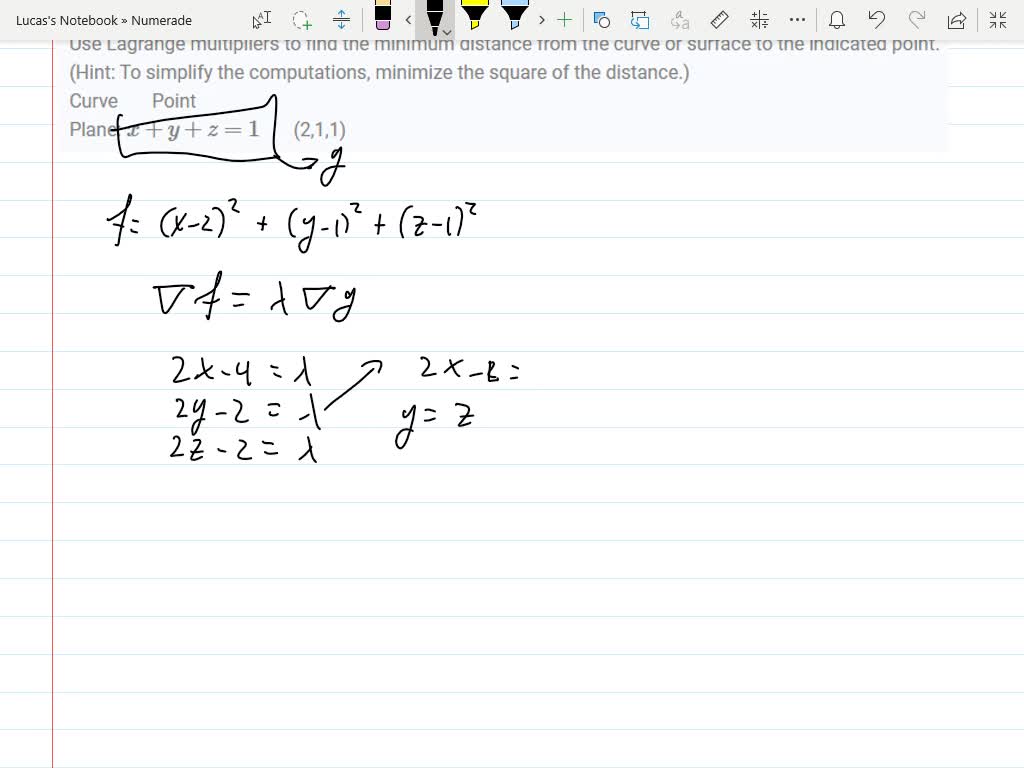 Lucas's Notebook » Numerade
Use Lagrange multipliers to find the minimum distance from the curve or surface to the indicated point.
(Hint: To simplify the computations, minimize the square of the distance.)
Curve Point
Plane: x + y + z = 1 (2,1,1)
g
f = (x-2)² + (y-1)² + (z-1)²
∇f = λ∇g
2x-4 = λ 2x-
2y-2 = λ y = z
2z-2 = λ